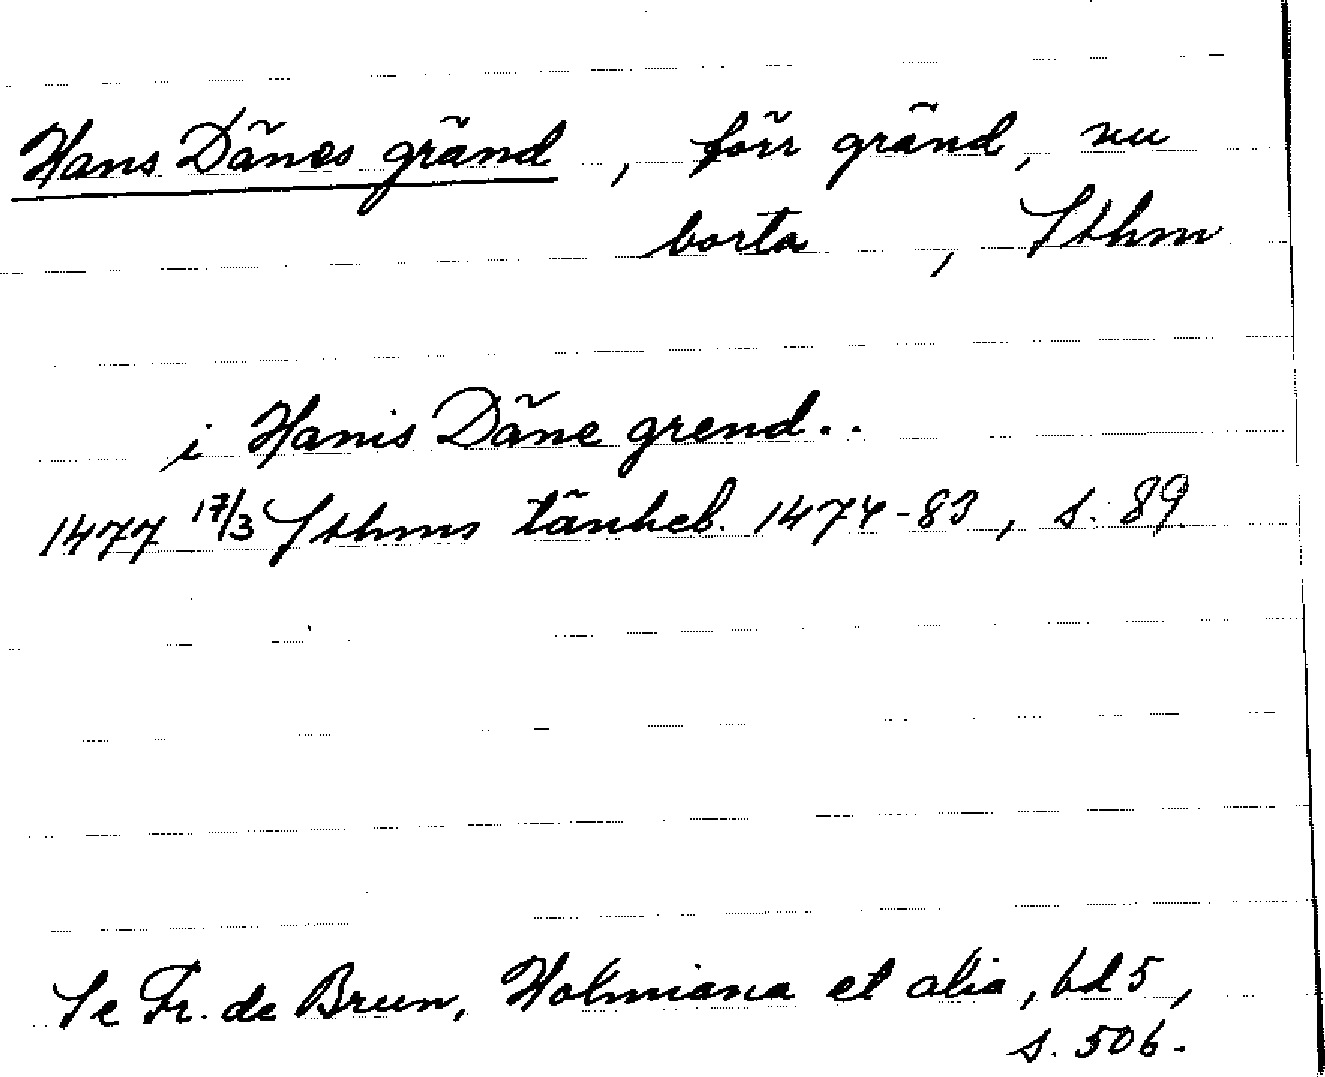 Hans Dänes gränd, förr gränd, nu
borta, Sthm
i Hanis Däne grend..
1477 17/3 Sthms tänkeb. 1474-83, s. 89.
Se Fr. de Brun, Holmiana et alia, bd 5,
s. 506.